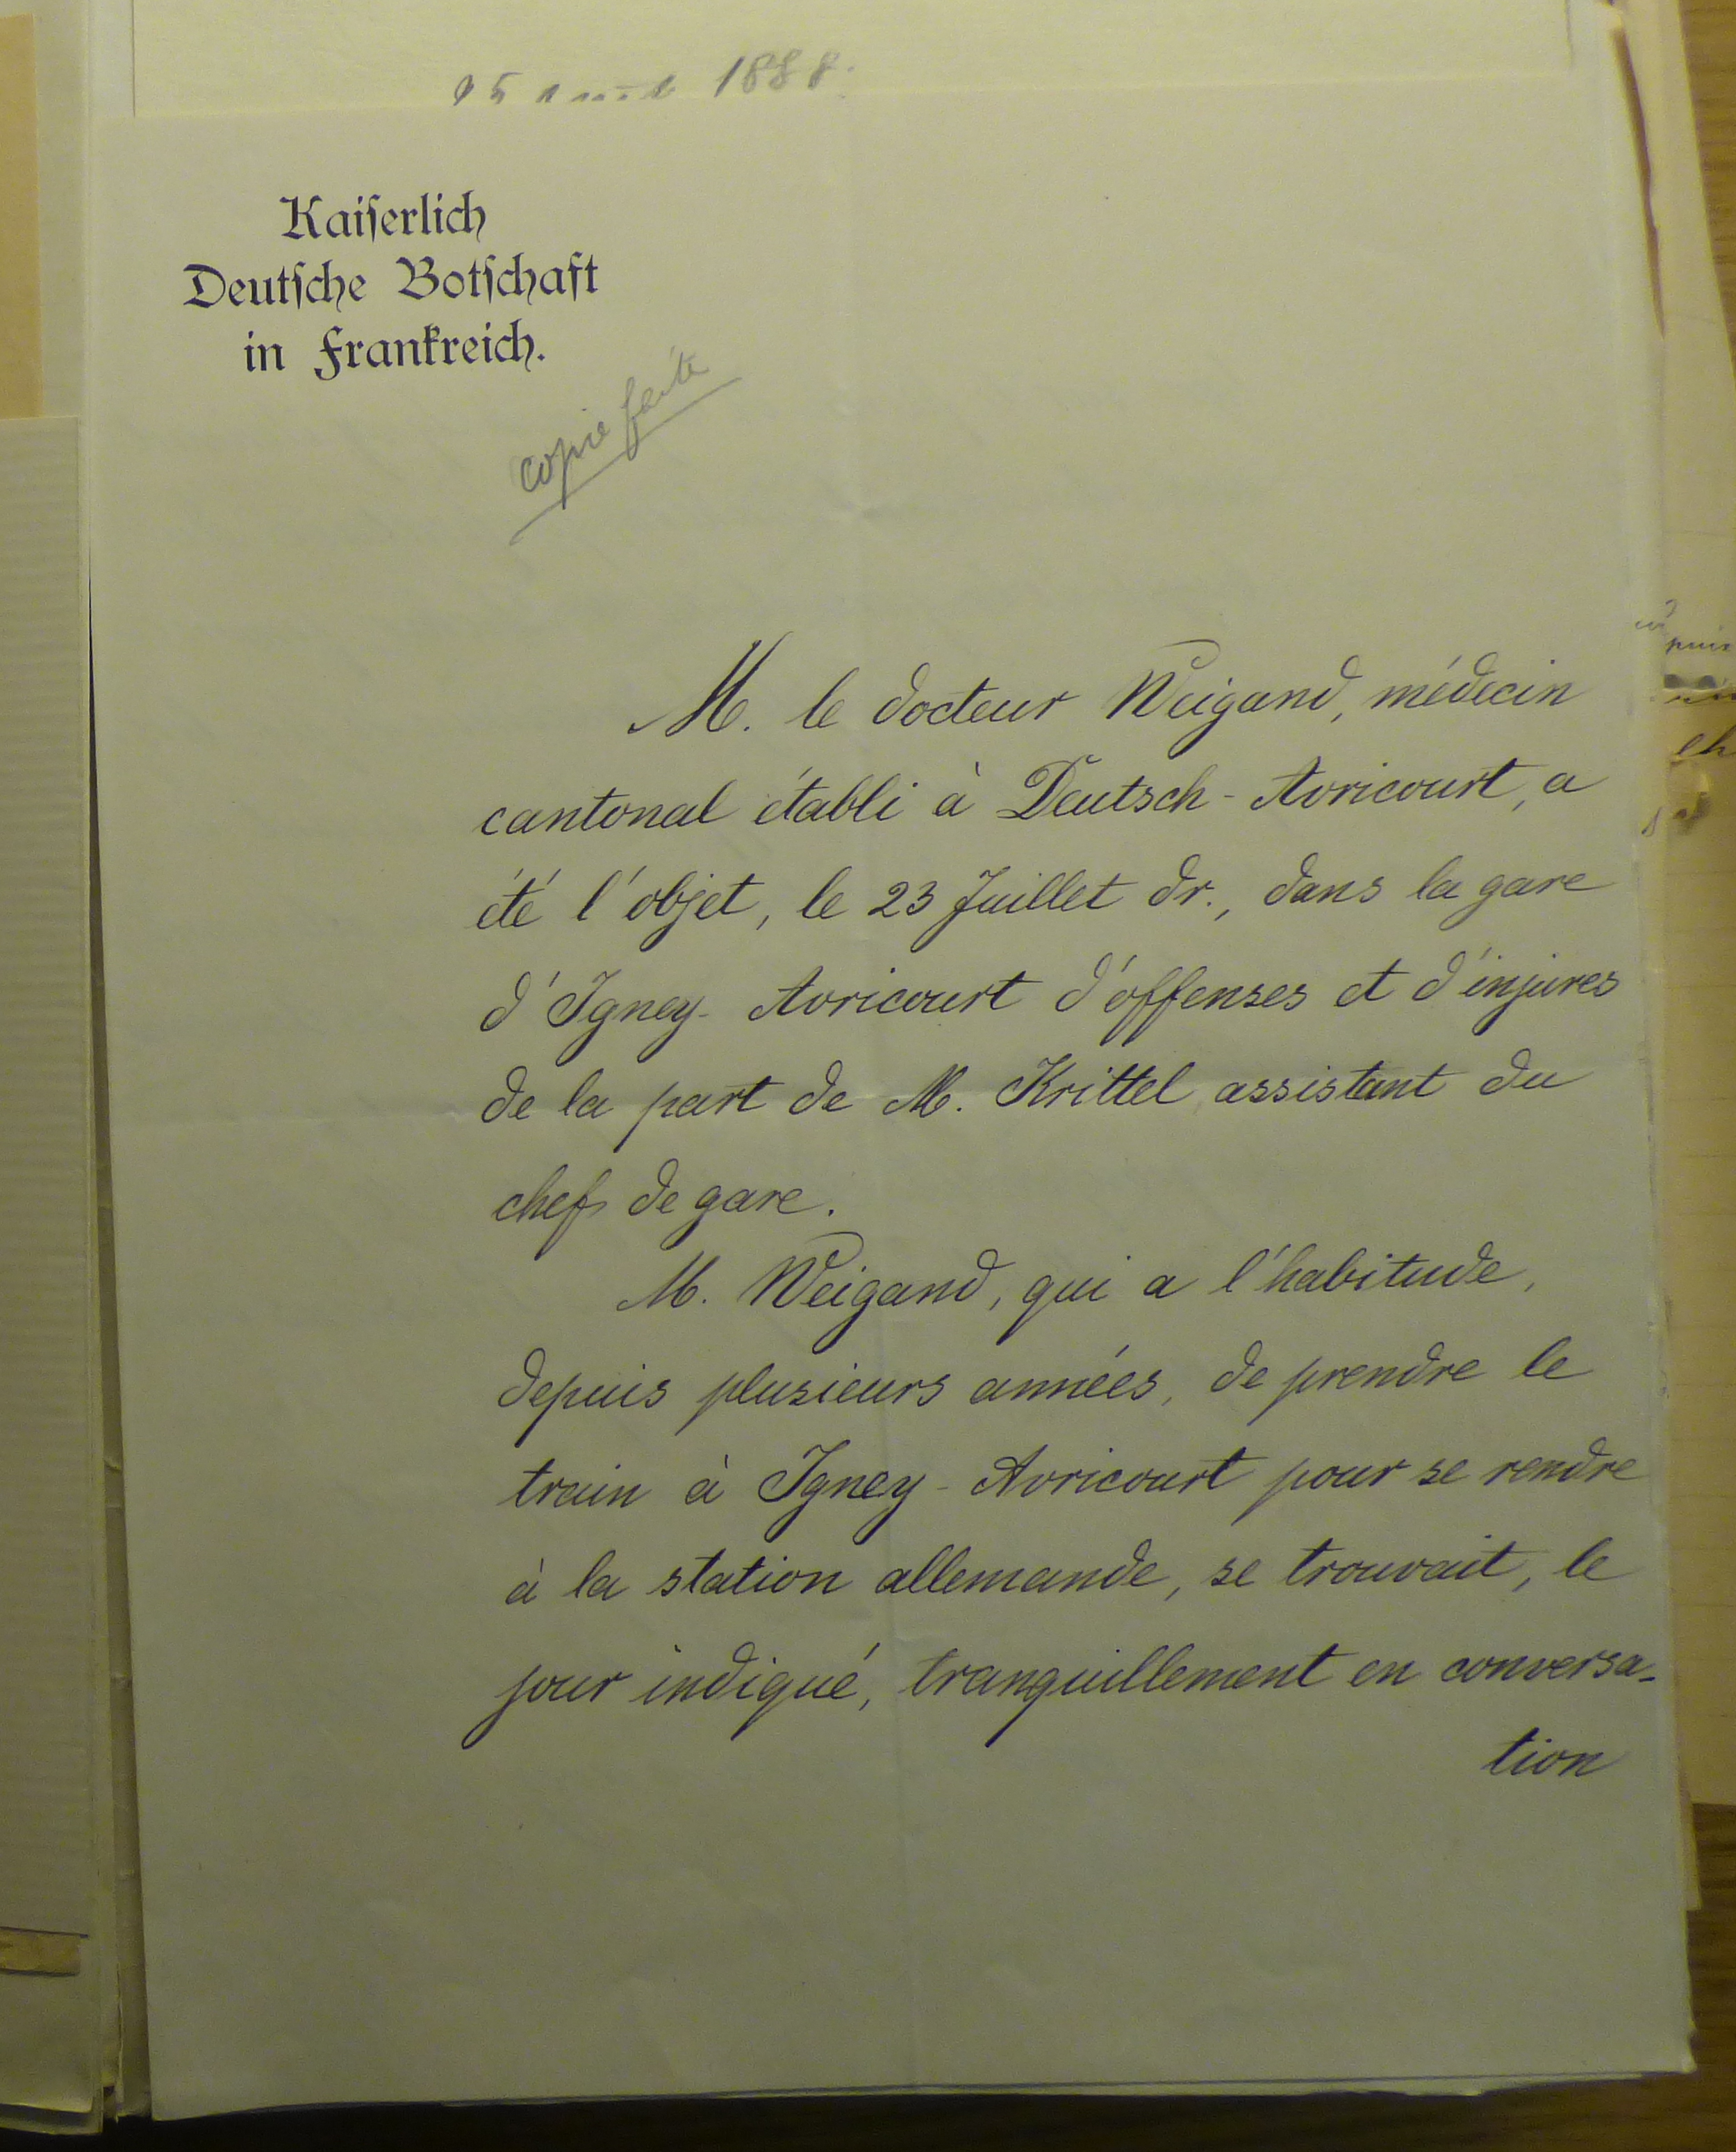 1888.
Kaiserlich
Deutsche Botschaft
in Frankreich.
copie faite
M. le docteur Weigand, médecin
cantonal établi à Deutsch-Avricourt, a
été l'objet, le 23 Juillet dr., dans la gare
d'Igney-Avricourt d'offenses et d'injures
de la part de M. Krittel, assistant du
chef de gare.
M. Weigand, qui a l'habitude,
depuis plusieurs années, de prendre le
train à Igney-Avricourt pour se rendre
à la station allemande, se trouvait, le
jour indiqué, tranquillement en conversa-
tion